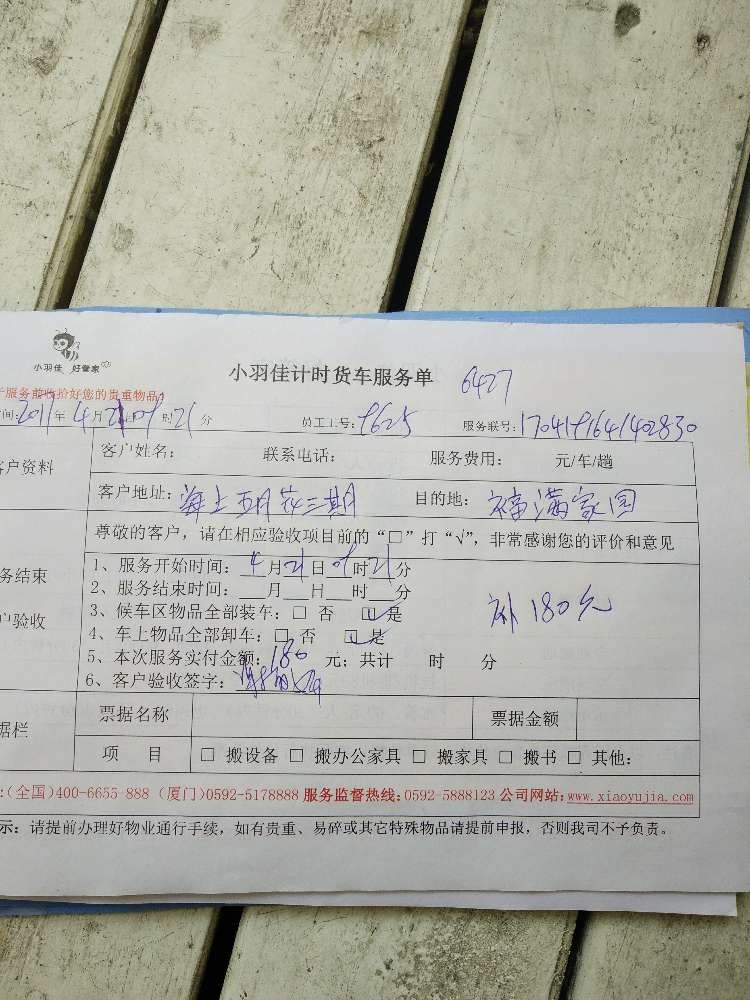 小羽佳 好管家
小羽佳计时货车服务单 6427
服务前收拾好您的贵重物品!
间:2017年4月21日09时21分 员工工号:9625 服务联号:1704191641402830
客户资料
客户姓名: 联系电话: 服务费用: 元/车/趟
客户地址:海上五月花二期 目的地:福满家园
尊敬的客户,请在相应验收项目前的“□”打“√”,非常感谢您的评价和意见
务结束
户验收
1、服务开始时间:4月21日09时21分
2、服务结束时间:___月___日___时___分
3、候车区物品全部装车:□ 否 ☑是
补180元
4、车上物品全部卸车:□ 否 ☑是
5、本次服务实付金额:180 元;共计 时 分
6、客户验收签字:
据栏
票据名称 票据金额
项 目 □ 搬设备 □ 搬办公家具 □ 搬家具 □ 搬书 □ 其他:
:(全国)400-6655-888 (厦门)0592-5178888 服务监督热线:0592-5888123 公司网站:www.xiaoyujia.com
示:请提前办理好物业通行手续,如有贵重、易碎或其它特殊物品请提前申报,否则我司不予负责。